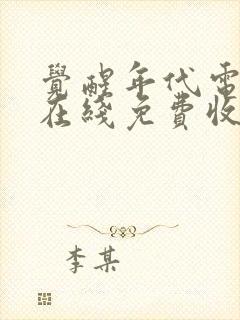 覺醒年代電
在綫免費收
李某